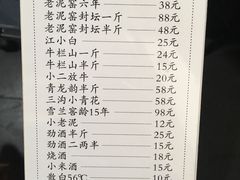 老泥窑六年 38元
老泥窑封坛一斤 88元
老泥窑封坛半斤 48元
江小白 25元
牛栏山一斤 24元
牛栏山半斤 15元
小二放牛 20元
青龙韵半斤 58元
三沟小青花 58元
雪兰窖龄15年 98元
小老泥 12元
劲酒半斤 25元
劲酒二两半 15元
烧酒 18元
小米酒 15元
散白56℃ 10元